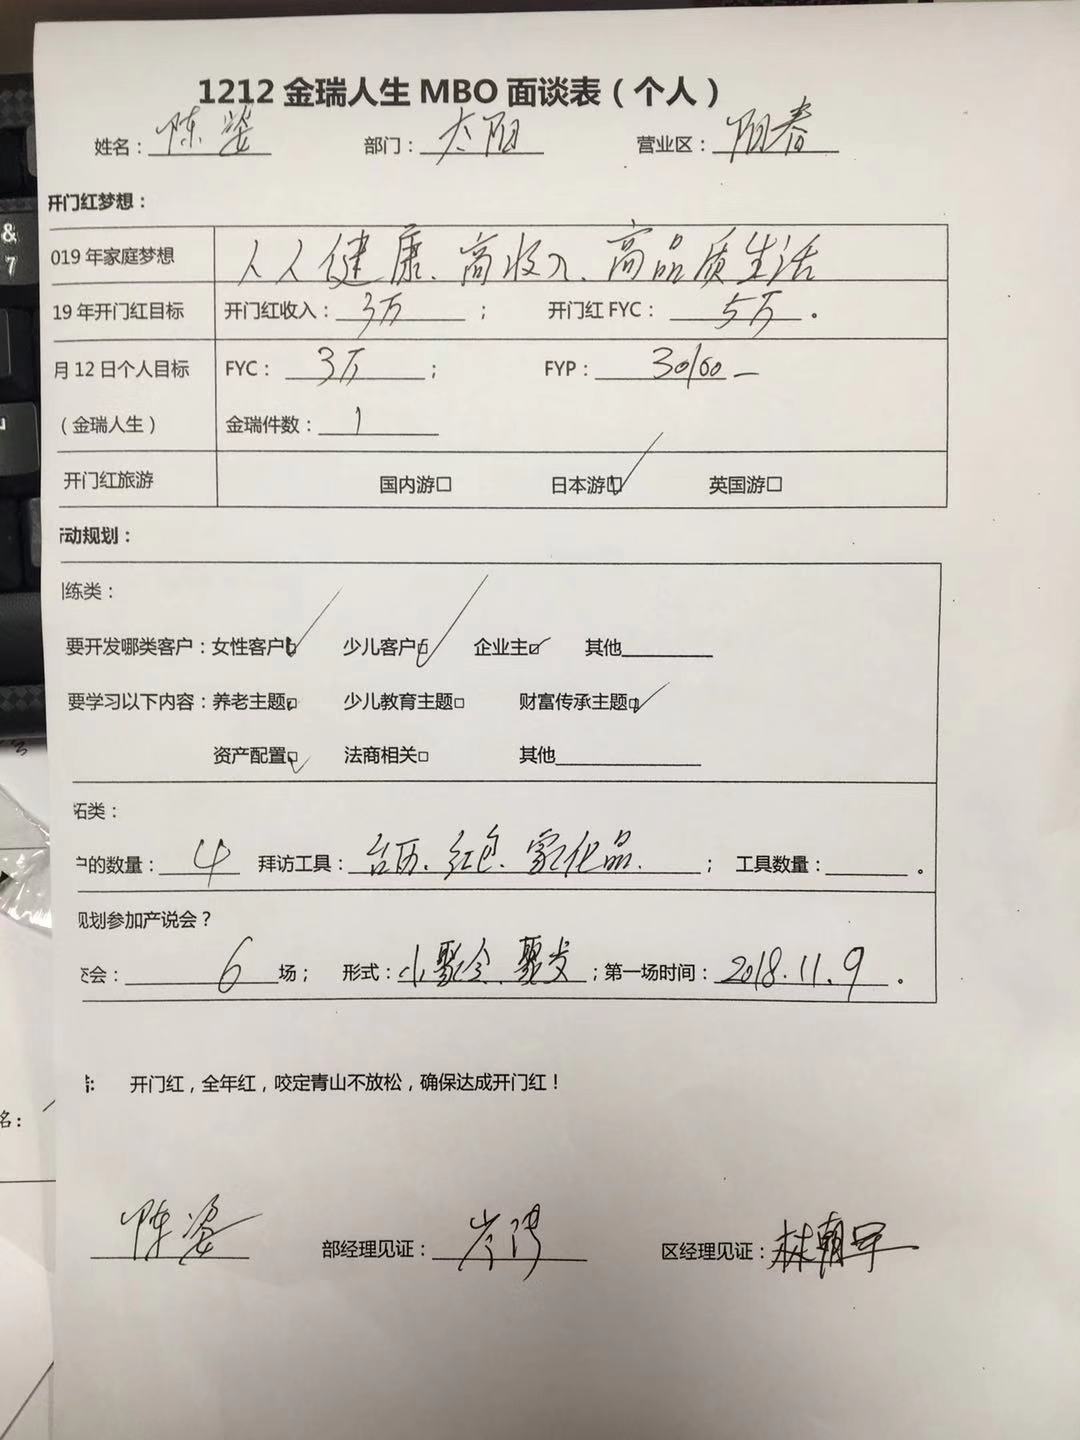 1212金瑞人生MBO面谈表（个人）
姓名：陈姿 部门：太阳 营业区：阳春
开门红梦想：
019年家庭梦想 人人健康、高收入、高品质生活
19年开门红目标 开门红收入：3万； 开门红FYC：5万。
月12日个人目标 FYC：3万； FYP：
（金瑞人生） 金瑞件数：1
开门红旅游 国内游□ 日本游□✓ 英国游□
动规划：
练类：
要开发哪类客户：女性客户□✓ 少儿客户□✓ 企业主□✓ 其他
要学习以下内容：养老主题□ 少儿教育主题□ 财富传承主题□✓
资产配置□✓ 法商相关□ 其他
拓类：
户的数量：4 拜访工具：台历、红包、家化品.； 工具数量： 。
规划参加产说会？
交会：6场； 形式：小聚会、聚发；第一场时间：2018.11.9。
开门红，全年红，咬定青山不放松，确保达成开门红！
陈姿 部经理见证： 区经理见证：林朝军
&
7
名：